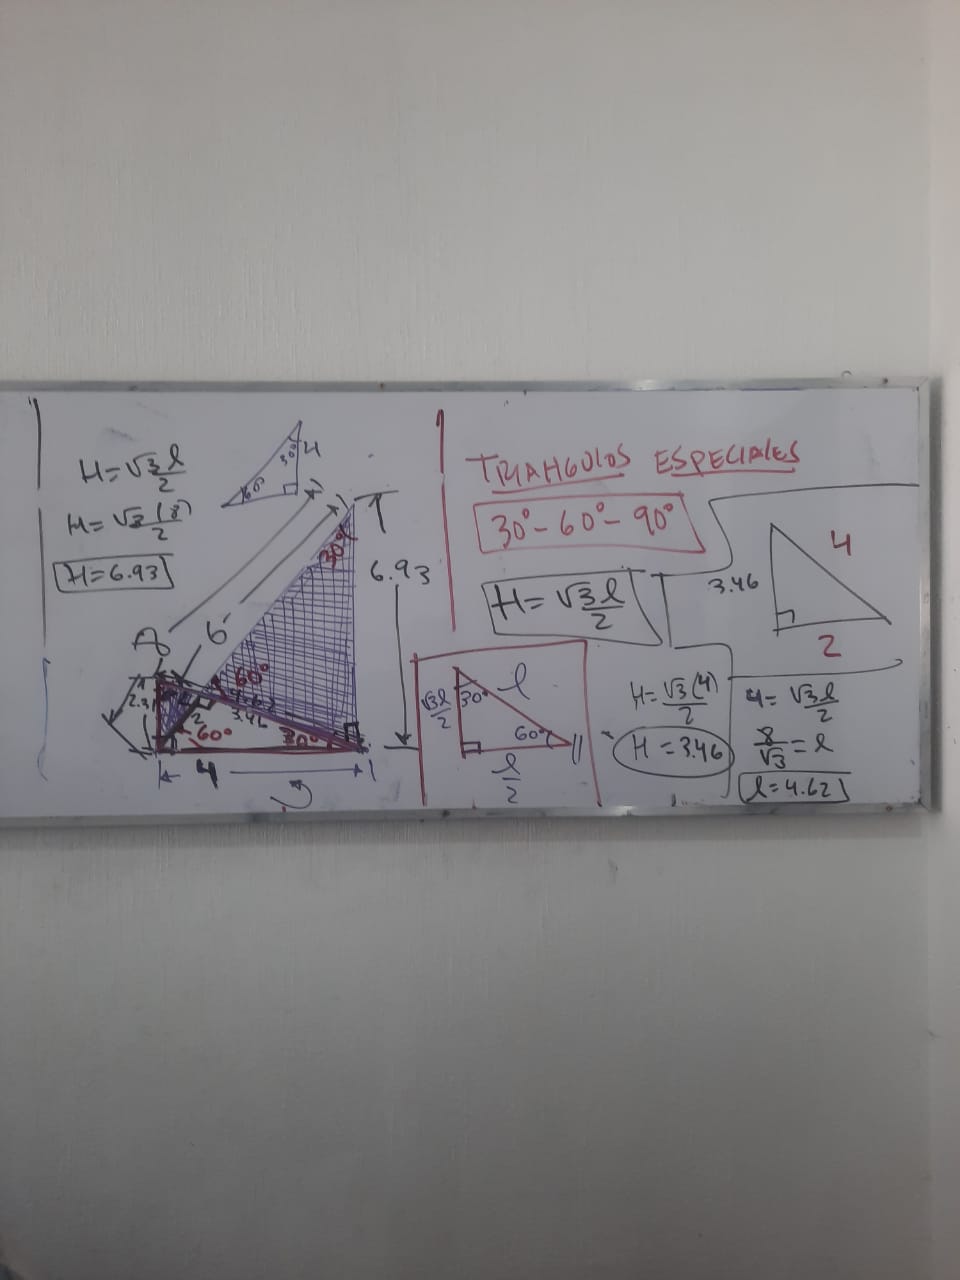 H = √3 l/2
H = √3 (8)/2
H = 6.93
30°
H
60°
8
6
30°
6.93
60°
4.62
3.46
2
60°
30°
4
TRIANGULOS ESPECIALES
30° - 60° - 90°
H = √3 l/2
√3 l/2
30°
l
60°
l/2
H = √3 (4)/2
H = 3.46
3.46
4
2
4 = √3 l/2
8/√3 = l
l = 4.62